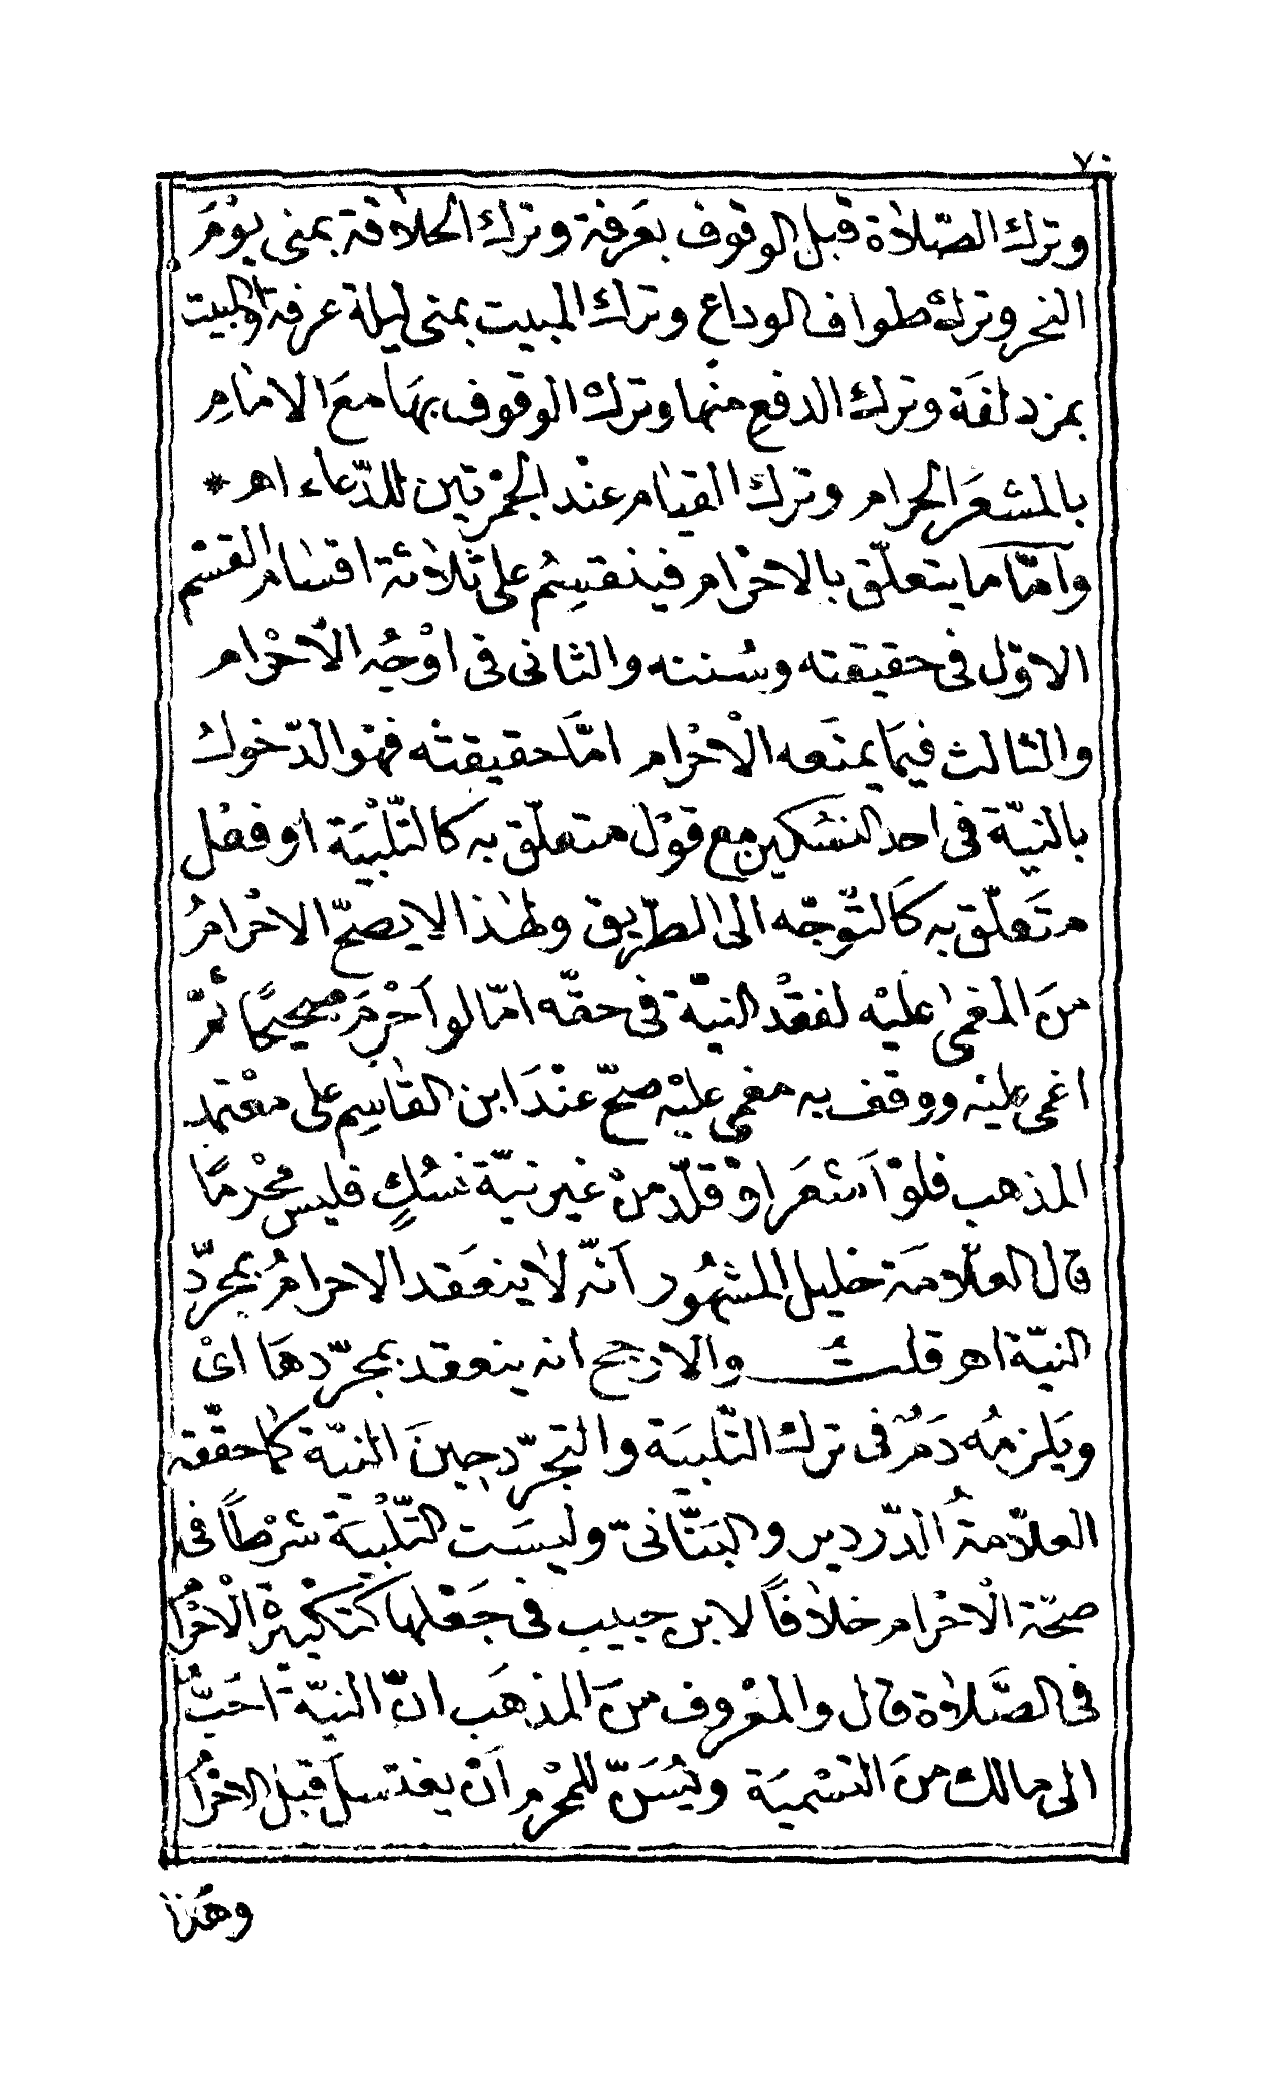 ٧٠
وترك الصّلاة قبل الوقوف بعَرفة وترك الحلاقة بمنى يوْمَ
النحر وترك طواف الوداع وترك المبيت بمنى ليلة عرفة او المبيت
بمزدلفَة وترك الدفع منْها وترك الوقوف بهَا معَ الامَامِ
بالمشعَر الحرام وترك القيام عنْد الجمْرتين للدّعاء اهـ *
وامّا ما يتعلّق بالاحْرام فينقسِمُ على ثلاثة اقسام القسْم
الاوّل فى حقيقته وسُننه والثانى فى اوْجُه الْاحْرام
والثالث فيمَا يمنَعه الْاحْرام امّا حقيقته فهْو الدّخولُ
بالنيّة فى احد النسْكين مع قوْل متعلّق به كالتّلْبيَة او فعْل
متَعلّق به كَالتّوجّه الى الطّريق ولهٰذا لا يصحّ الاحْرامُ
منَ المغمىٰ علَيْه لفقْد النيّة فى حقّه امّا لو اَحْرمَ صحيحًا ثمّ
اغمى عليْه ووقف به مغمى عليْه صحّ عنْدَ ابن القاسِم على معْتمد
المذهب فلوْ اَشعَر اوْ قلّد منْ غير نيّة نسُكٍ فليس محْرمًا
قال العلّامَة خليل المشهُور اَنّه لَا ينعَقد الاحرامُ بمجرّد
النيّة اهـ قلتُ والارجح انه ينعقد بمجرّدهَا اىْ
ويَلزمُه دَمٌ فى ترك التّلبيَة والتجرّد حِينَ النيّة كما حقّقه
العلّامةُ الدّردير والبَنّانىّ وليسَت التّلْبيَة شرْطًا فى
صحّة الْاحْرام خلَافًا لابن حبيب فى جَعْلها كتكْبيرة الْاحْرام
فى الصَّلاة قال والمعْروف منَ المذهَب انّ النيّة احَبُّ
الى مالك منَ التسْميَة ويُسَنّ للمحْرم اَنْ يغتسلَ قبْل الاحْرام
وهٰذا